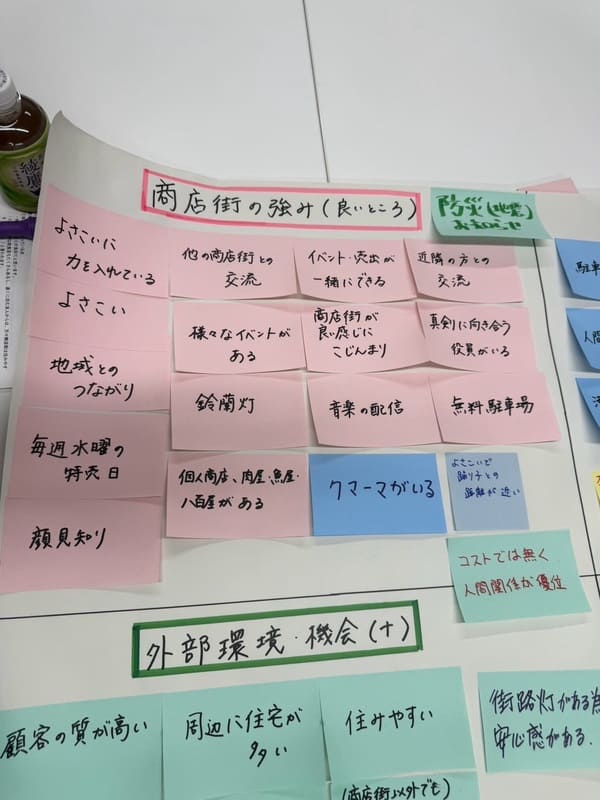 商店街の強み(良いところ)
防災(地震)
よさいに
力を入れている
他の商店街との
交流
イベント・売出が
一緒にできる
近隣の方との
交流
よさこい
様々なイベントが
ある
商店街が
良い感じに
こじんまり
真剣に向き合う
役員がいる
地域との
つながり
鈴蘭灯
音楽の配信
無料駐車場
毎週水曜の
特売日
個人商店、肉屋・魚屋・
八百屋がある
クマーマがいる
よさこいで
踊り子との
距離が近い
顔見知り
コストでは無く
人間関係が優位
外部環境・機会(+)
顧客の質が高い
周辺に住宅が
多い
住みやすい
(商店街以外でも)
街路灯がある為
安心感がある.
駐車
人間
綾鷹